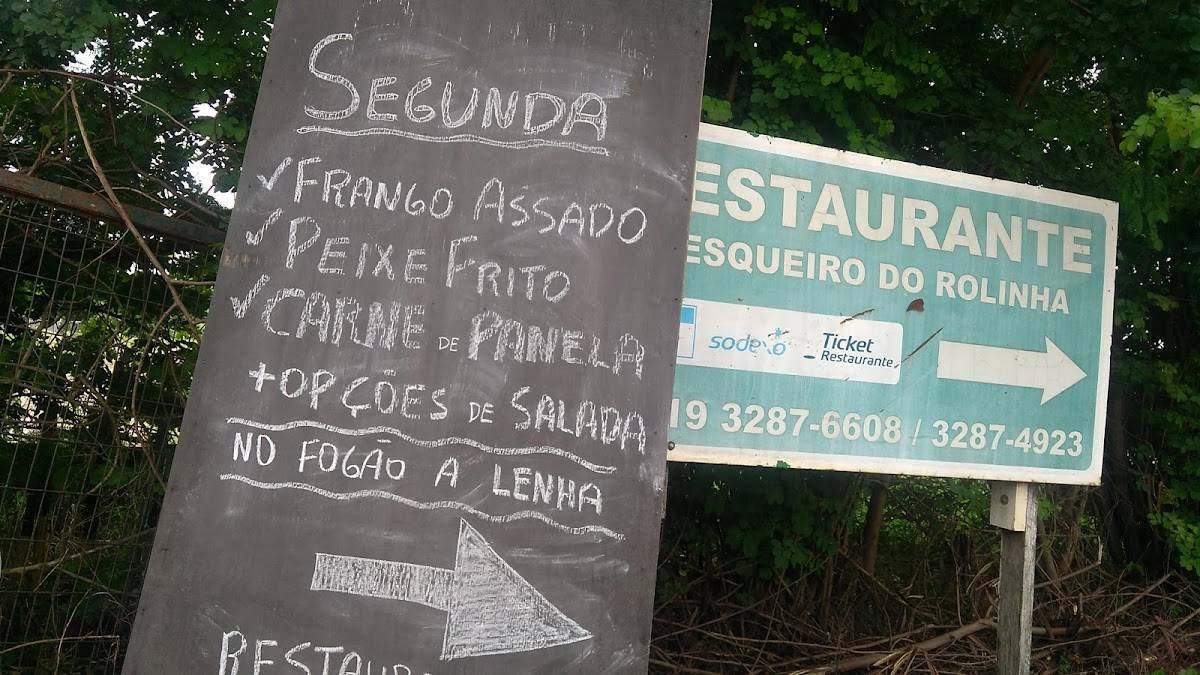 SEGUNDA
✓ FRANGO ASSADO
✓ PEIXE FRITO
✓ CARNE DE PANELA
+ OPÇÕES DE SALADA
NO FOGÃO A LENHA
RESTAUR
ESTAURANTE
ESQUEIRO DO ROLINHA
sodexo
Ticket
Restaurante
19 3287-6608 / 3287-4923